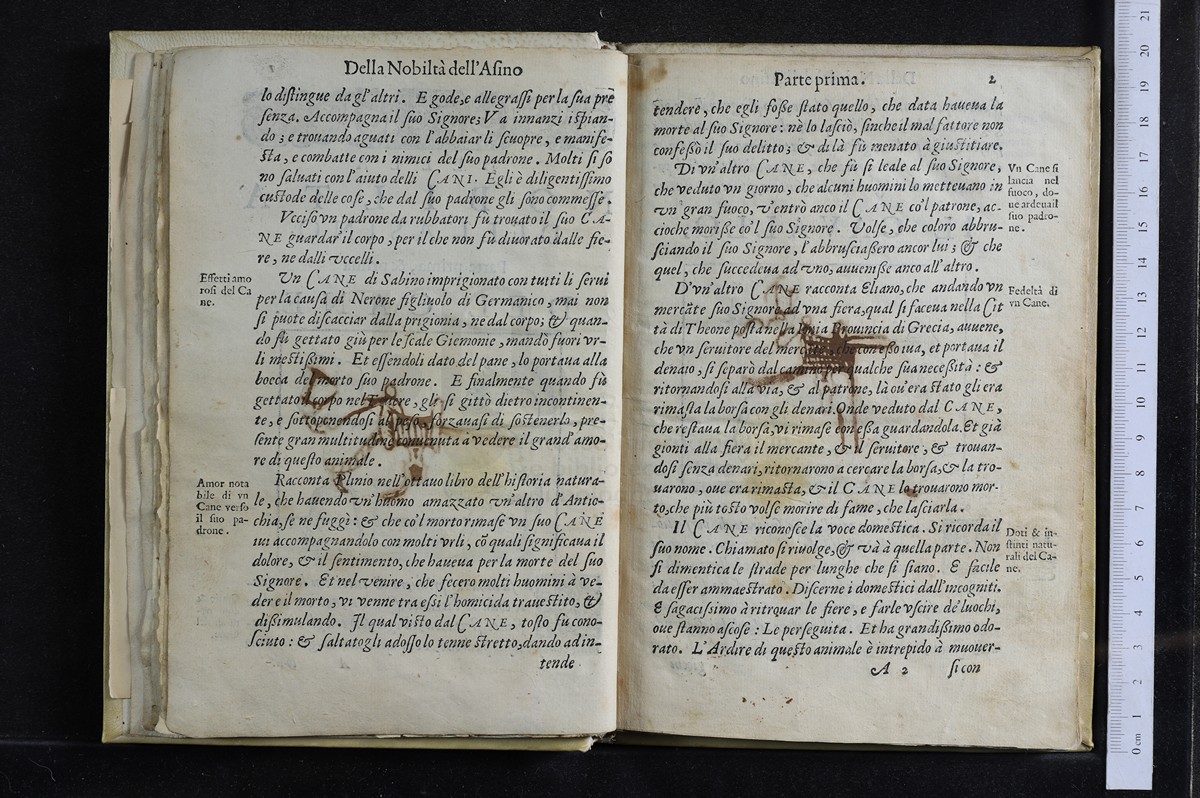 Della Nobiltà dell'Asino
lo distingue da gl'altri. E gode, e allegrassi per la sua prē
senza. Accompagna il suo Signore; Va innanzi ispian-
do; e trouando aguati con l'abbaiar li scuopre, e manife-
sta, e combatte con i nimici del suo padrone. Molti si sō
no saluati con l'aiuto delli CANI. Egli è diligentissimo
custode delle cose, che dal suo padrone gli sono commesse.
Vcciso vn padrone da rubbatori fù trouato il suo CA-
NE guardar'il corpo, per il che non fù diuorato dalle fie-
re, ne dalli vccelli.
Effetti amo
rosi del Ca
ne.
Un CANE di Sabino imprigionato con tutti li serui
per la causa di Nerone figliuolo di Germanico, mai non
si puote discacciar dalla prigionia, ne dal corpo; & quan-
do fù gettato giù per le scale Giemonie, mandò fuori vr-
li mestissimi. Et essendoli dato del pane, lo portaua alla
bocca del morto suo padrone. E finalmente quando fù
gettato il corpo nel Teuere, gli si gittò dietro incontinen-
te, e sottoponendosi al peso, sforzauasi di sostenerlo, pre-
sente gran multitudine conuenuta a vedere il grand'amo-
re di questo animale.
Amor nota
bile di vn
Cane verso
il suo pa-
drone.
Racconta Plinio nell'ottauo libro dell'historia natura-
le, che hauendo vn'huomo amazzato vn'altro d'Antio-
chia, se ne fuggì: & che co'l morto rimase vn suo CANE
iui accompagnandolo con molti vrli, cō quali significaua il
dolore, & il sentimento, che haueua per la morte del suo
Signore. Et nel venire, che fecero molti huomini à ve-
dere il morto, vi venne tra essi l'homicida trauestito, &
dissimulando. Il qual visto dal CANE, tosto fu cono-
sciuto: & saltatogli adosso lo tenne stretto, dando ad in-
tende
Parte prima. 2
tendere, che egli fosse stato quello, che data haueua la
morte al suo Signore: nè lo lasciò, sinche il mal fattore non
confessò il suo delitto; & di là fù menato à giustitiare.
Di vn'altro CANE, che fù si leale al suo Signore,
che veduto vn giorno, che alcuni huomini lo metteuano in
vn gran fuoco, v'entrò anco il CANE co'l patrone, ac-
cioche morisse co'l suo Signore. Volse, che coloro abbru-
sciando il suo Signore, l'abbrusciassero ancor lui; & che
quel, che succedeua ad vno, auuenisse anco all'altro.
Vn Cane si
lancia nel
fuoco, do-
ue ardeua il
suo padro-
ne.
D'vn'altro CANE racconta Eliano, che andando vn
mercāte suo Signore ad vna fiera, qual si faceua nella Cit
tà di Theone posta nella Ionia Prouincia di Grecia, auuene,
che vn seruitore del mercāte, che con esso iua, et portaua il
denaio, si separò dal camino per qualche sua necessità: &
ritornandosi alla via, & al patrone, là ou'era stato gli era
rimasta la borsa con gli denari. Onde veduto dal CANE,
che restaua la borsa, vi rimase con essa guardandola. Et già
gionti alla fiera il mercante, & il seruitore, & trouan-
dosi senza denari, ritornarono a cercare la borsa, & la tro-
uarono, oue era rimasta, & il CANE lo trouarono mor-
to, che più tosto volse morire di fame, che lasciarla.
Fedeltà di
vn Cane.
Il CANE riconosce la voce domestica. Si ricorda il
suo nome. Chiamato si riuolge, & và à quella parte. Non
si dimentica le strade per lunghe che si siano. E facile
da esser ammaestrato. Discerne i domestici dall'incogniti.
E sagacissimo à ritrouar le fiere, e farle vscire de' luochi,
oue stanno ascose: Le perseguita. Et ha grandissimo odo-
rato. L'Ardire di questo animale è intrepido à muouer-
Doti & in-
stinti natu-
rali del Ca-
ne.
A 2 si con